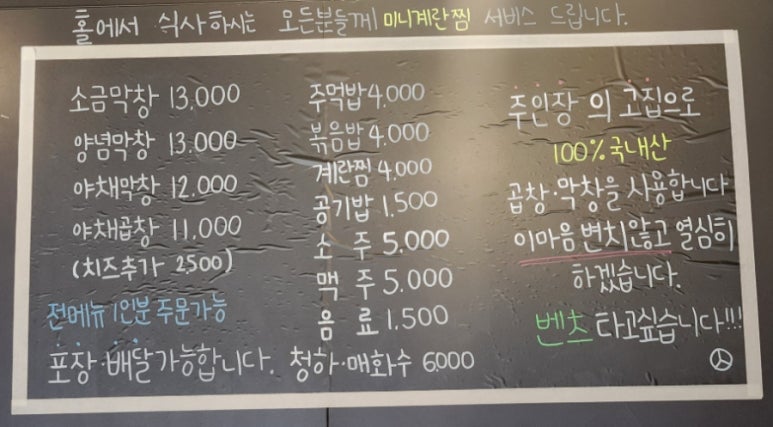 홀에서 식사하시는 모든분들께 미니계란찜 서비스 드립니다.
소금막창 13,000
양념막창 13,000
야채막창 12.000
야채곱창 11,000
(치즈추가 2,500)
전메뉴 1인분 주문가능
포장·배달가능합니다.
주먹밥 4.000
볶음밥 4.000
계란찜 4,000
공기밥 1.500
소 주 5.000
맥 주 5.000
음 료 1.500
청하·매화수 6.000
주인장의 고집으로
100% 국내산
곱창·막창을 사용합니다
이마음 변치않고 열심히
하겠습니다.
벤츠 타고싶습니다!!!